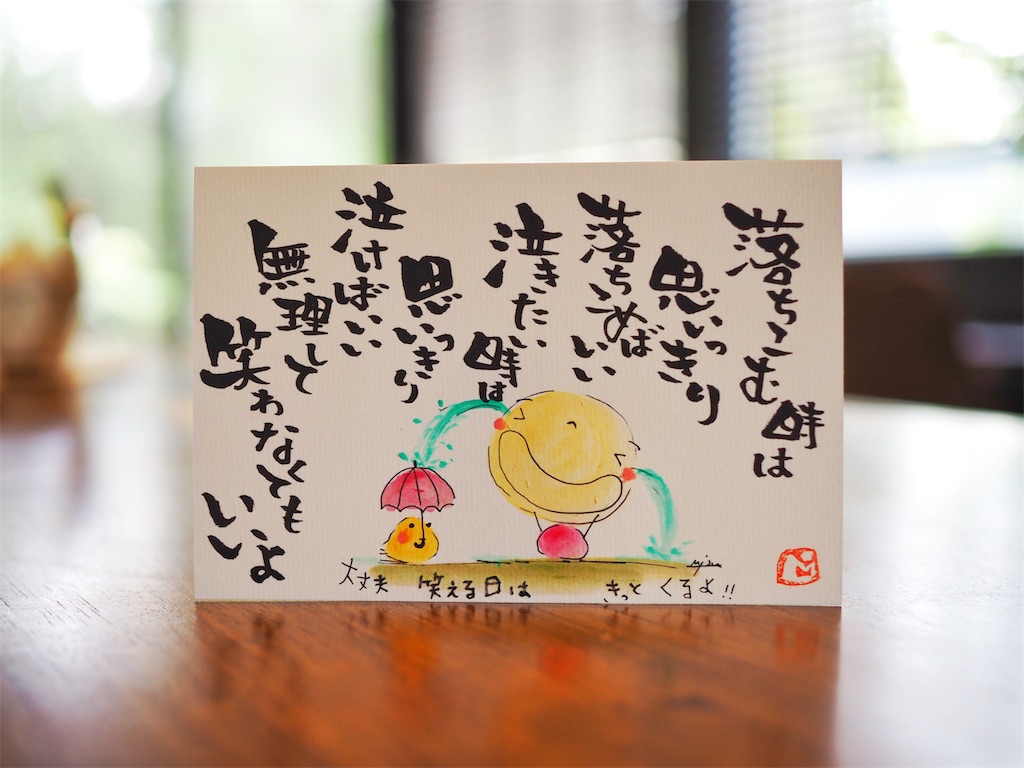 落ちこむ時は
思いっきり
落ちこめば
いい
泣きたい
時は
思いっきり
泣けばいい
無理して
笑わなくても
いいよ
大丈夫 笑える日は きっと くるよ!!